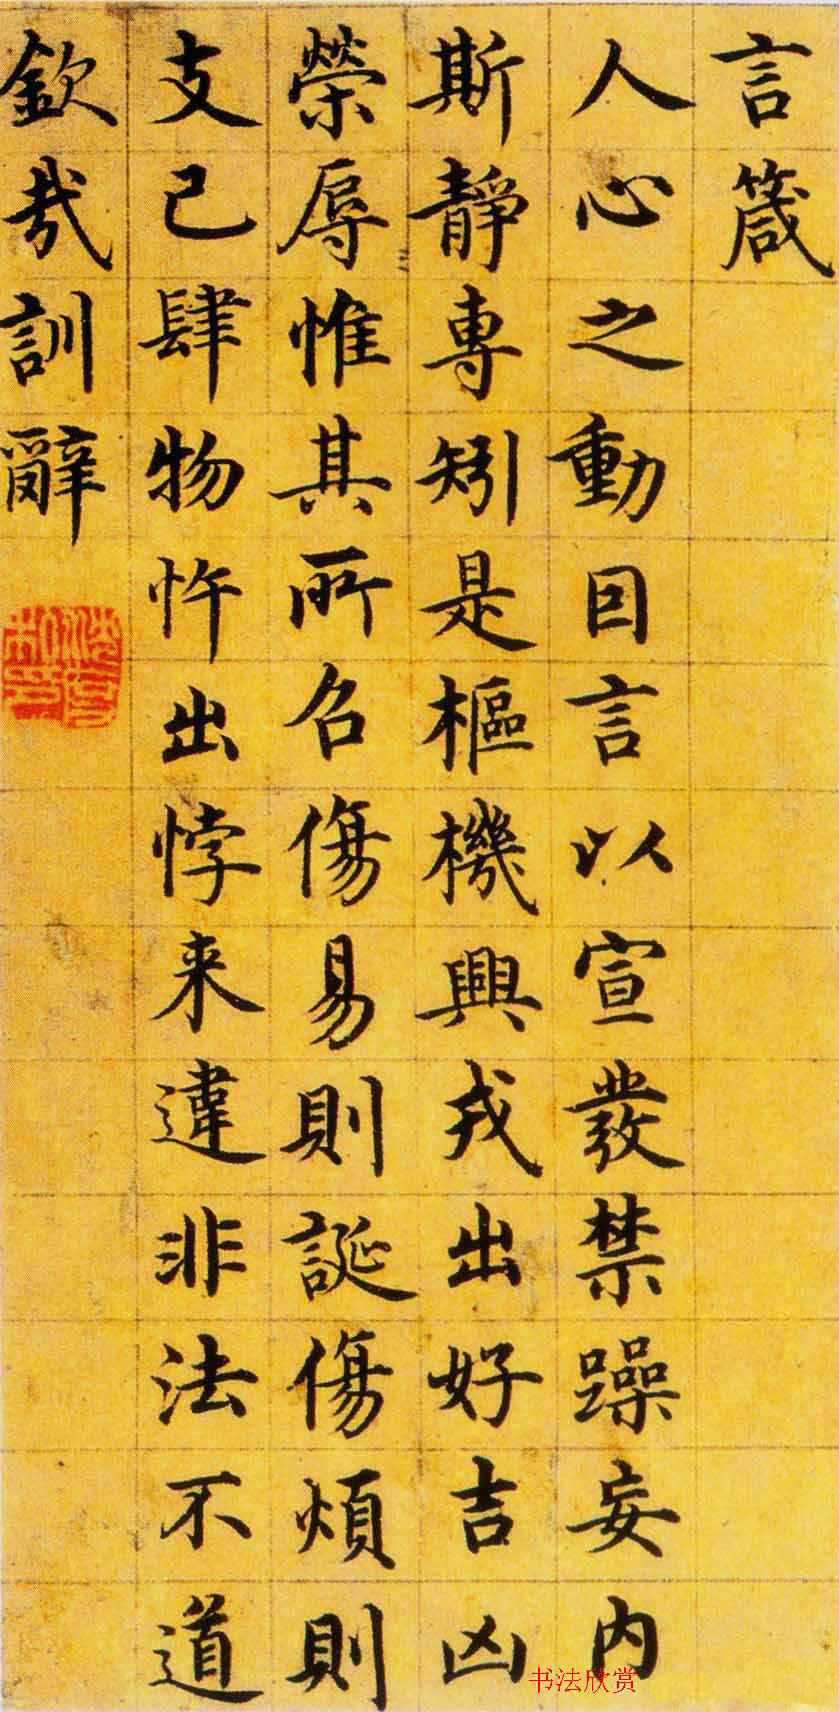 言箴
人心之動因言以宣發禁躁妄内
斯靜專矧是樞機興戎出好吉凶
榮辱惟其所召傷易則誕傷煩則
支己肆物忤出悖来違非法不道
欽哉訓辭
书法欣赏